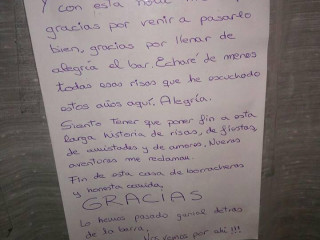 Y con esta nota
gracias por venir a pasarlo
bien, gracias por llenar de
alegría el bar. Echaré de menos
todas esas risas que he escuchado
estos años aquí. Alegría.
Siento tener que poner fin a esta
larga historia de risas, de fiestas,
de amistades y de amores. Nuevas
aventuras me reclaman.
Fin de esta casa de borracheras
y honesta comida,
GRACIAS
Lo hemos pasado genial detrás
de la barra,
Nos vemos por ahí!!!